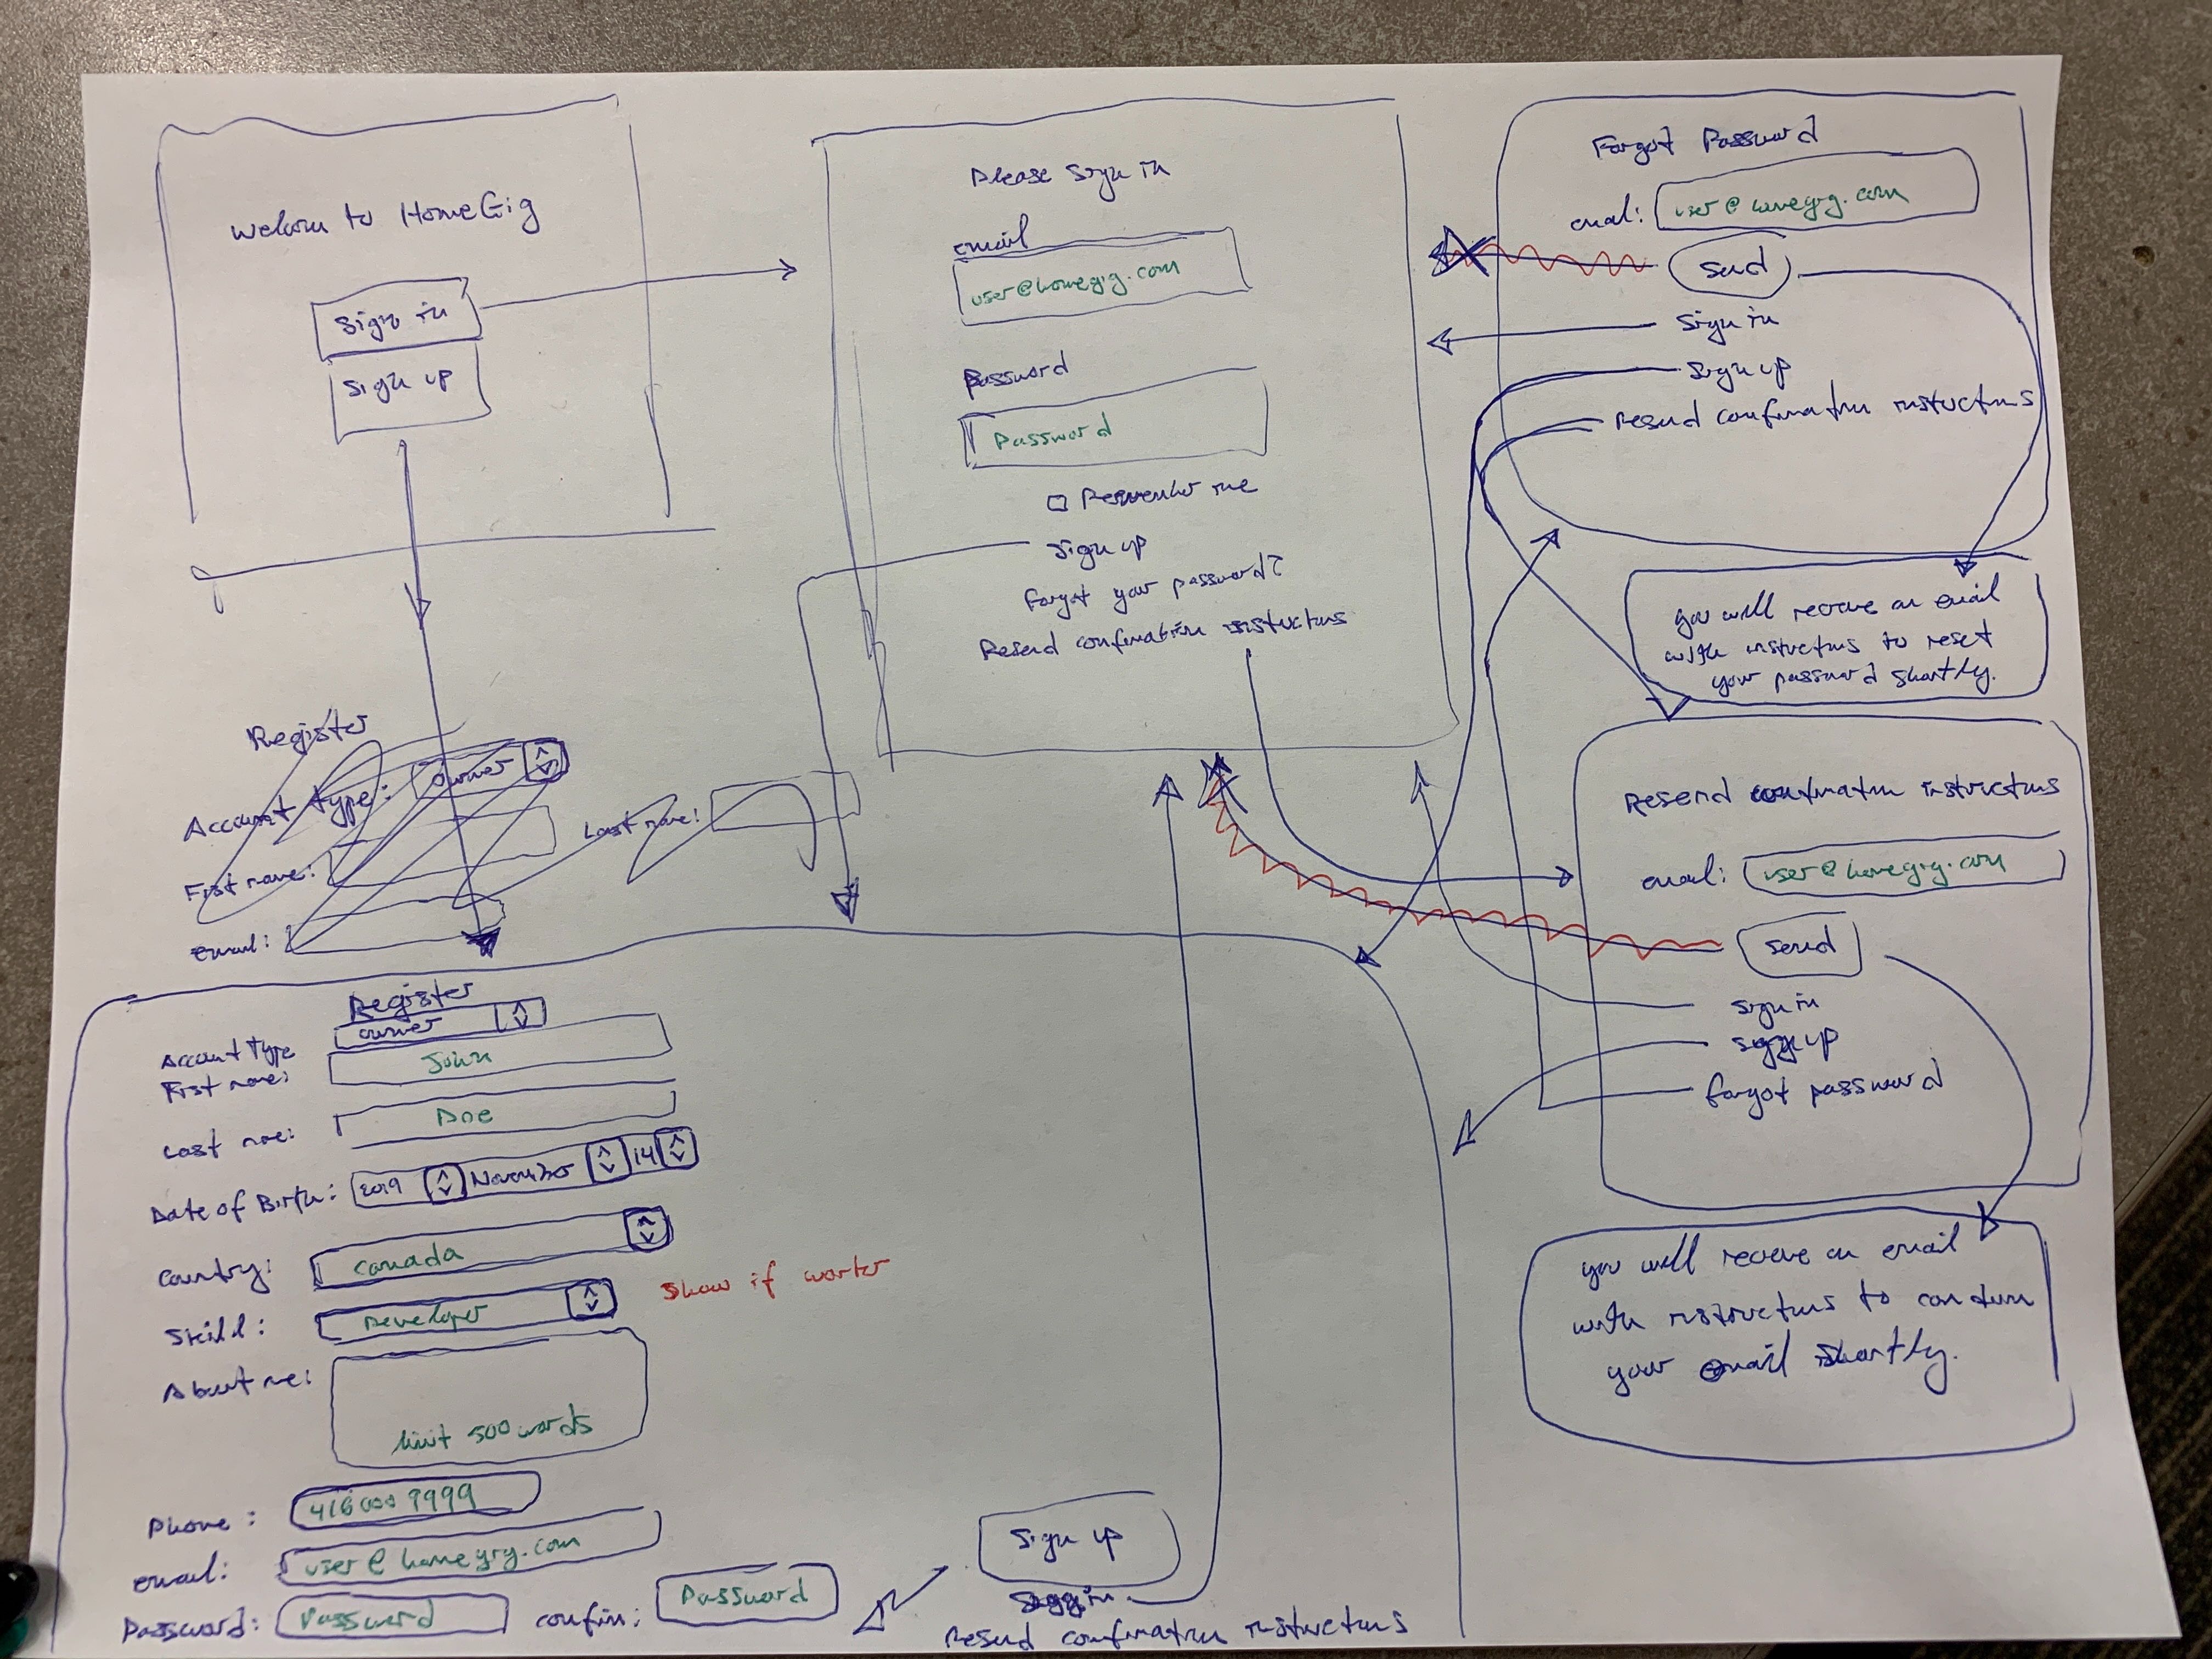 Welcom to HomeGig
Sign in
Sign up
Please Sign in
email
user@homegig.com
Password
Password
Remember me
Sign up
Forgot your password?
Resend confirmation instructions
Forgot Password
email:
user@homegig.com
send
Sign in
Sign up
Resend confirmation instuctions
you will receive an email
with instructions to reset
your password shortly.
Register
Account type: owner
First name:
Last name:
email:
Resend confirmation instructions
email: user@homegig.com
send
sign in
sign up
forgot password
you will receive an email
with instructions to confirm
your email shortly.
Register
Account Type owner
First name: John
Last name: Doe
Date of Birth: 2019 November 14
Country: Canada
Skill: Developer Show if worker
About me:
limit 500 words
Phone: 416 000 9999
email: user@homegig.com
Password: Password confirm: Password
Sign up
Sign in
Resend confirmation instructions